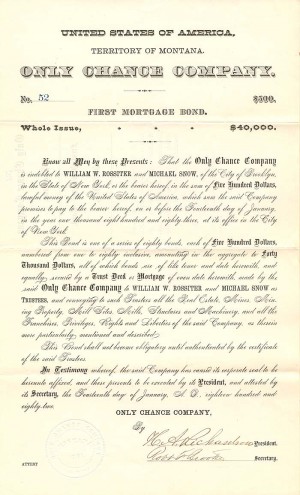 UNITED STATES OF AMERICA,
TERRITORY OF MONTANA.
ONLY CHANCE COMPANY.
No. 52 $500.
FIRST MORTGAGE BOND.
Whole Issue, $40,000.
Know all Men by these Presents: That the Only Chance Company
is indebted to WILLIAM W. ROSSITER and MICHAEL SNOW, of the City of Brooklyn,
in the State of New York, or the bearer hereof, in the sum of Five Hundred Dollars,
lawful money of the United States of America, which sum the said Company
promises to pay to the bearer hereof, on or before the Fourteenth day of January,
in the year one thousand eight hundred and eighty three, at its office in the City
of New York.
This Bond is one of a series of eighty bonds, each of Five Hundred Dollars,
numbered from one to eighty inclusive, amounting in the aggregate to Forty
Thousand Dollars, all of which bonds are of like tenor and date herewith, and
equally, secured by a Trust Deed or Mortgage of even date herewith, made by the
said Only Chance Company to WILLIAM W. ROSSITER and MICHAEL SNOW as
TRUSTEES, and conveying to such Trustees all the Real Estate, Mines, Min-
ing Property, Mill Sites, Mills, Structures and Machinery, and all the
Franchises, Privileges, Rights and Liberties of the said Company, as therein
more particularly, mentioned and described.
This Bond shall not become obligatory until authenticated by the certificate
of the said Trustees.
In Testimony whereof, the said Company has caused its corporate seal to be
hereunto affixed, and these presents to be executed by its President, and attested by
its Secretary, the Fourteenth day of January, A. D., eighteen hundred and
eighty-two.
ONLY CHANCE COMPANY,
By
President.
Secretary.
ATTEST